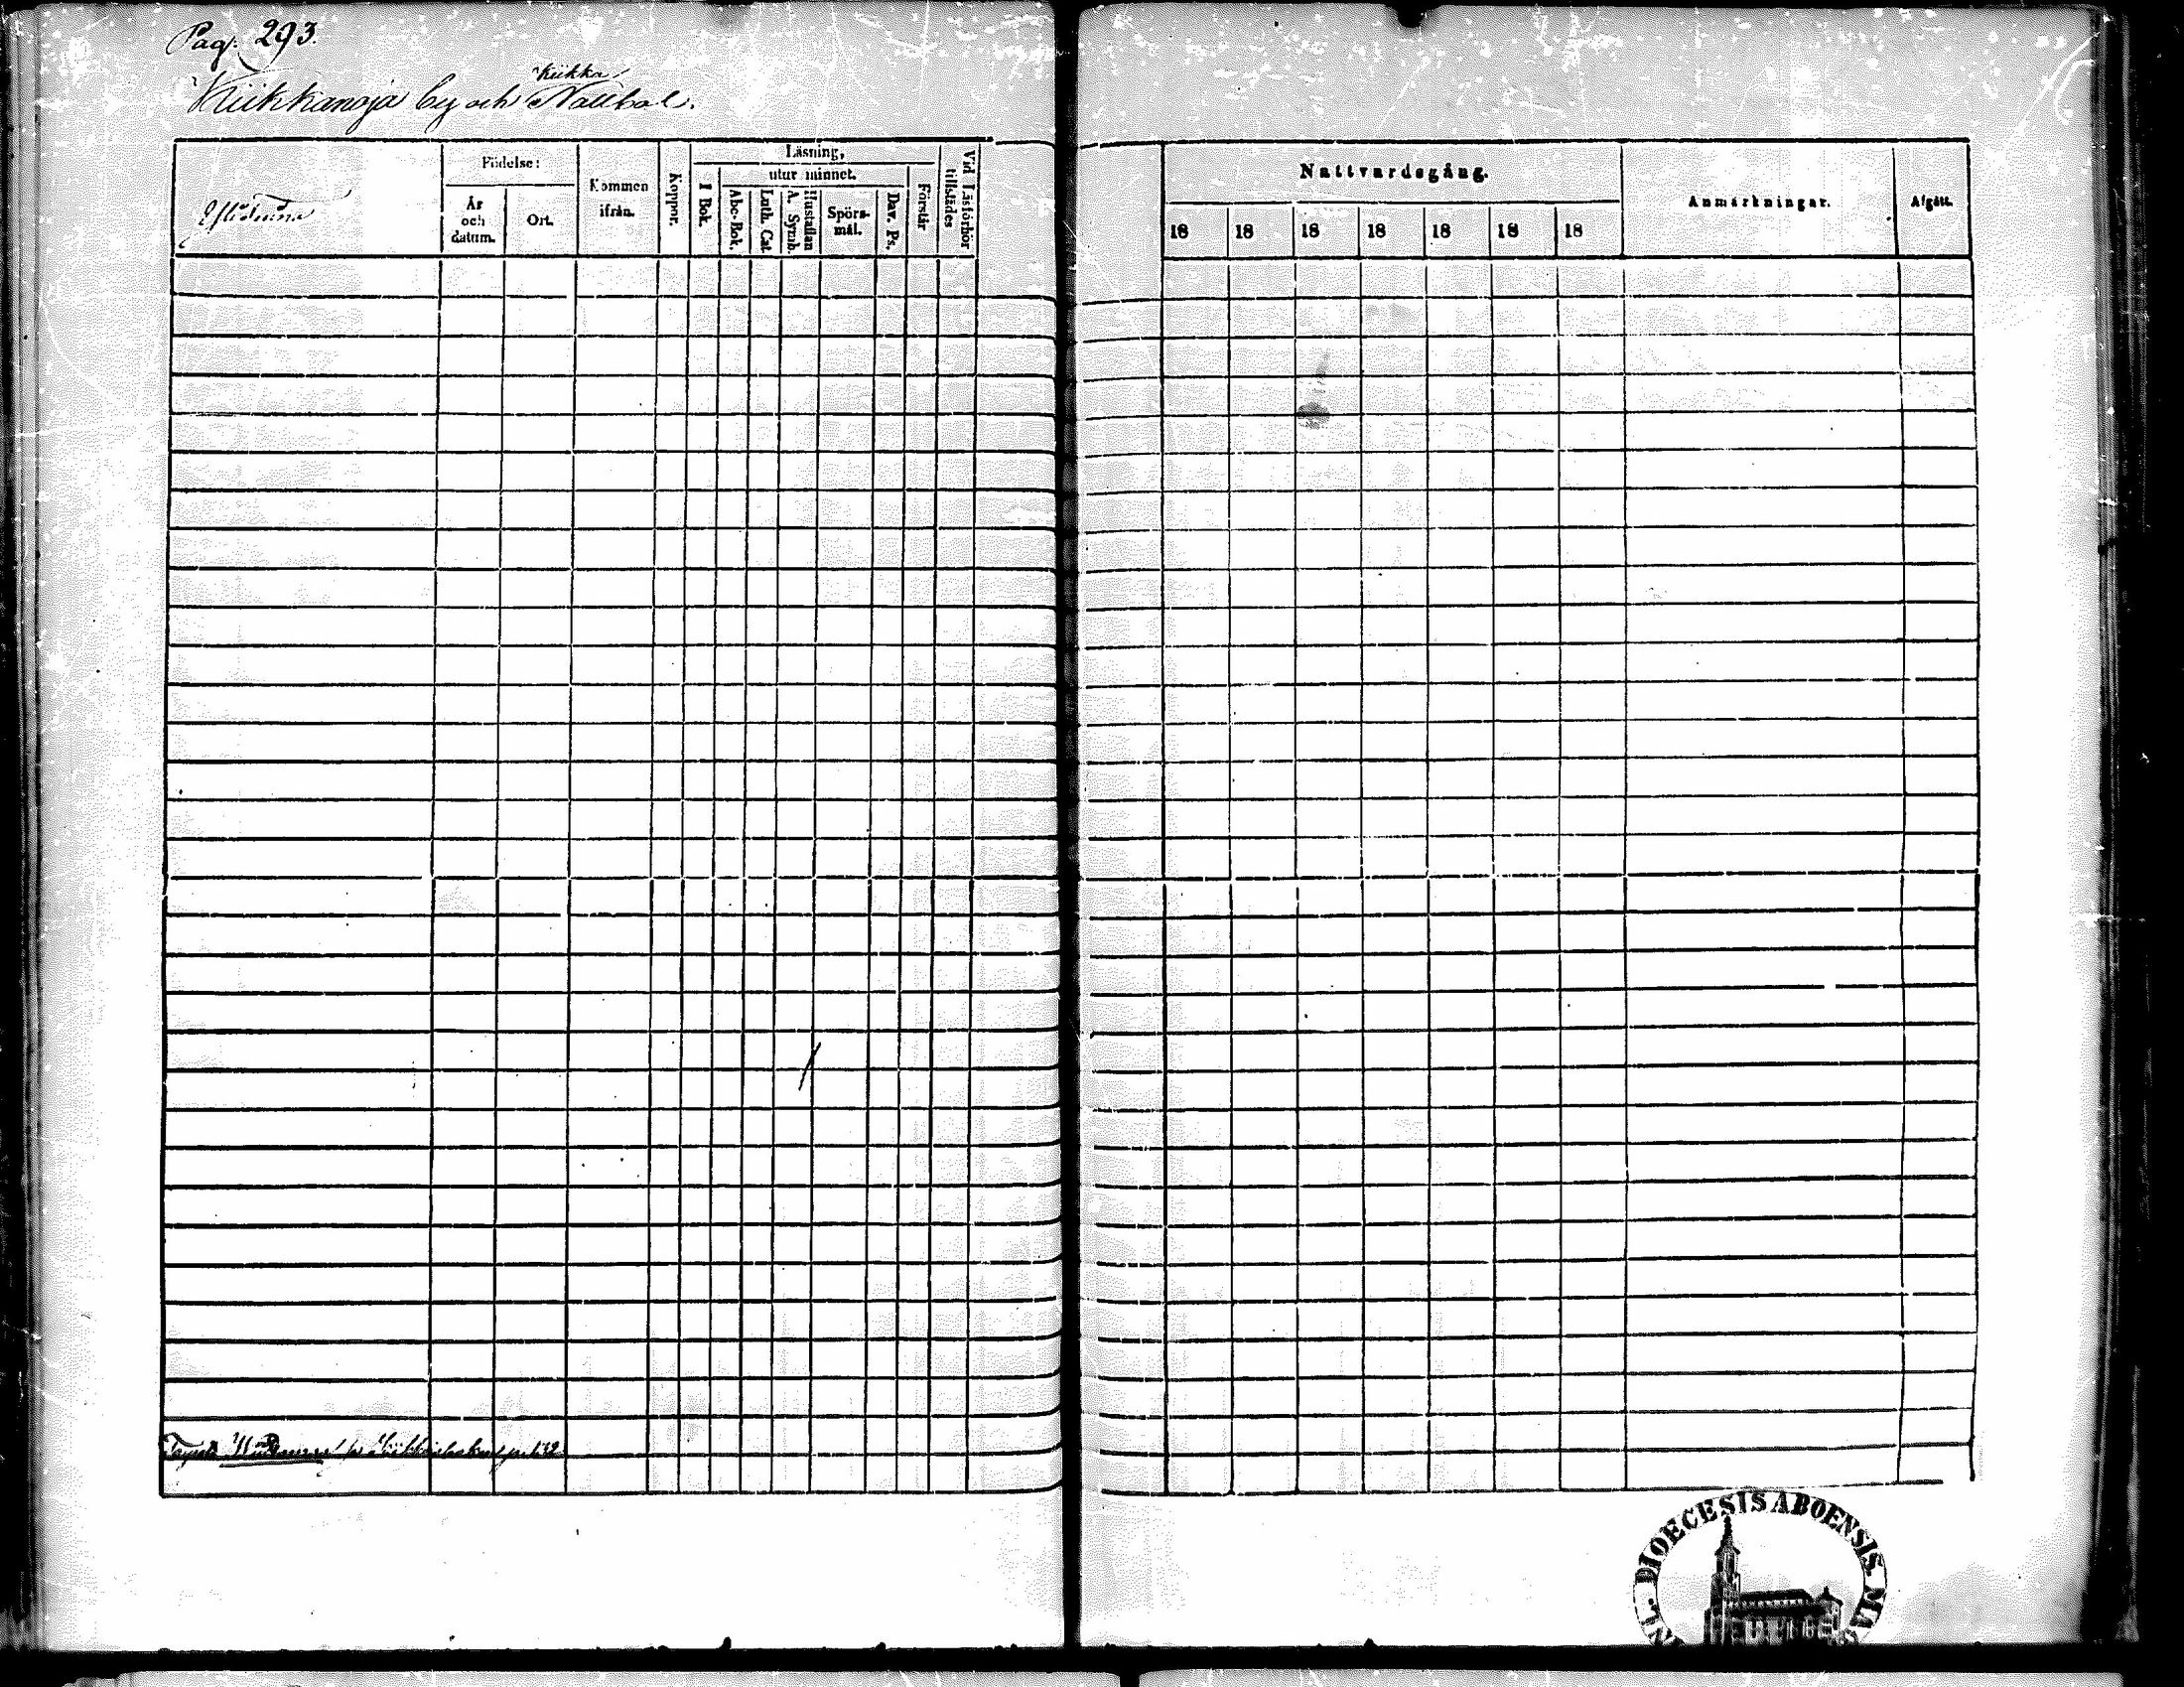 Pag. 293.
Kiikka
Kiikkanoja by och
Födelse:
År och datum.
Ort.
Kommen ifrån.
Koppor.
Läsning,
I Bok.
utur minnet.
Abc-Bok.
Luth. Cat.
Hustaflan
A. Symb.
Spörsmål.
Dav. Ps.
Förstår
Vid Läsförhör tillstädes
Nattvardsgång.
18 18 18 18 18 18 18
Anmärkningar.
Afgått.
DIOECESIS ABOENSIS.